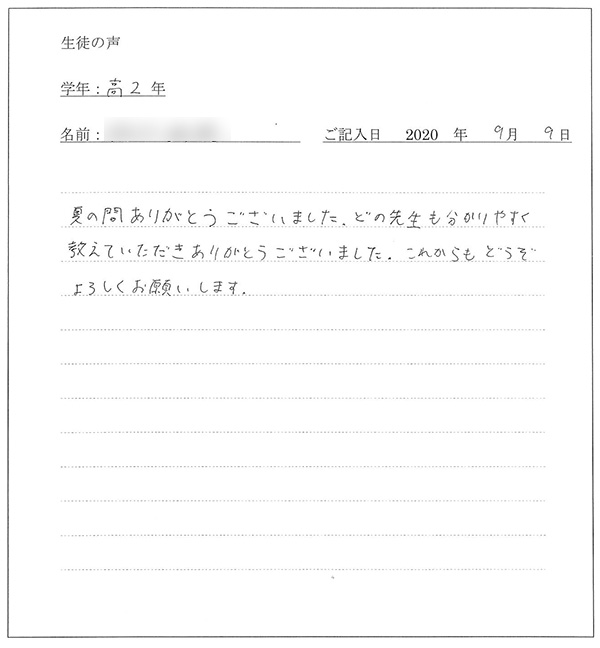 生徒の声
学年：高2年
名前： ご記入日 2020 年 9月 9日
夏の間ありがとうございました、どの先生も分かりやすく
教えていただきありがとうございました. これからもどうぞ
よろしくお願いします.